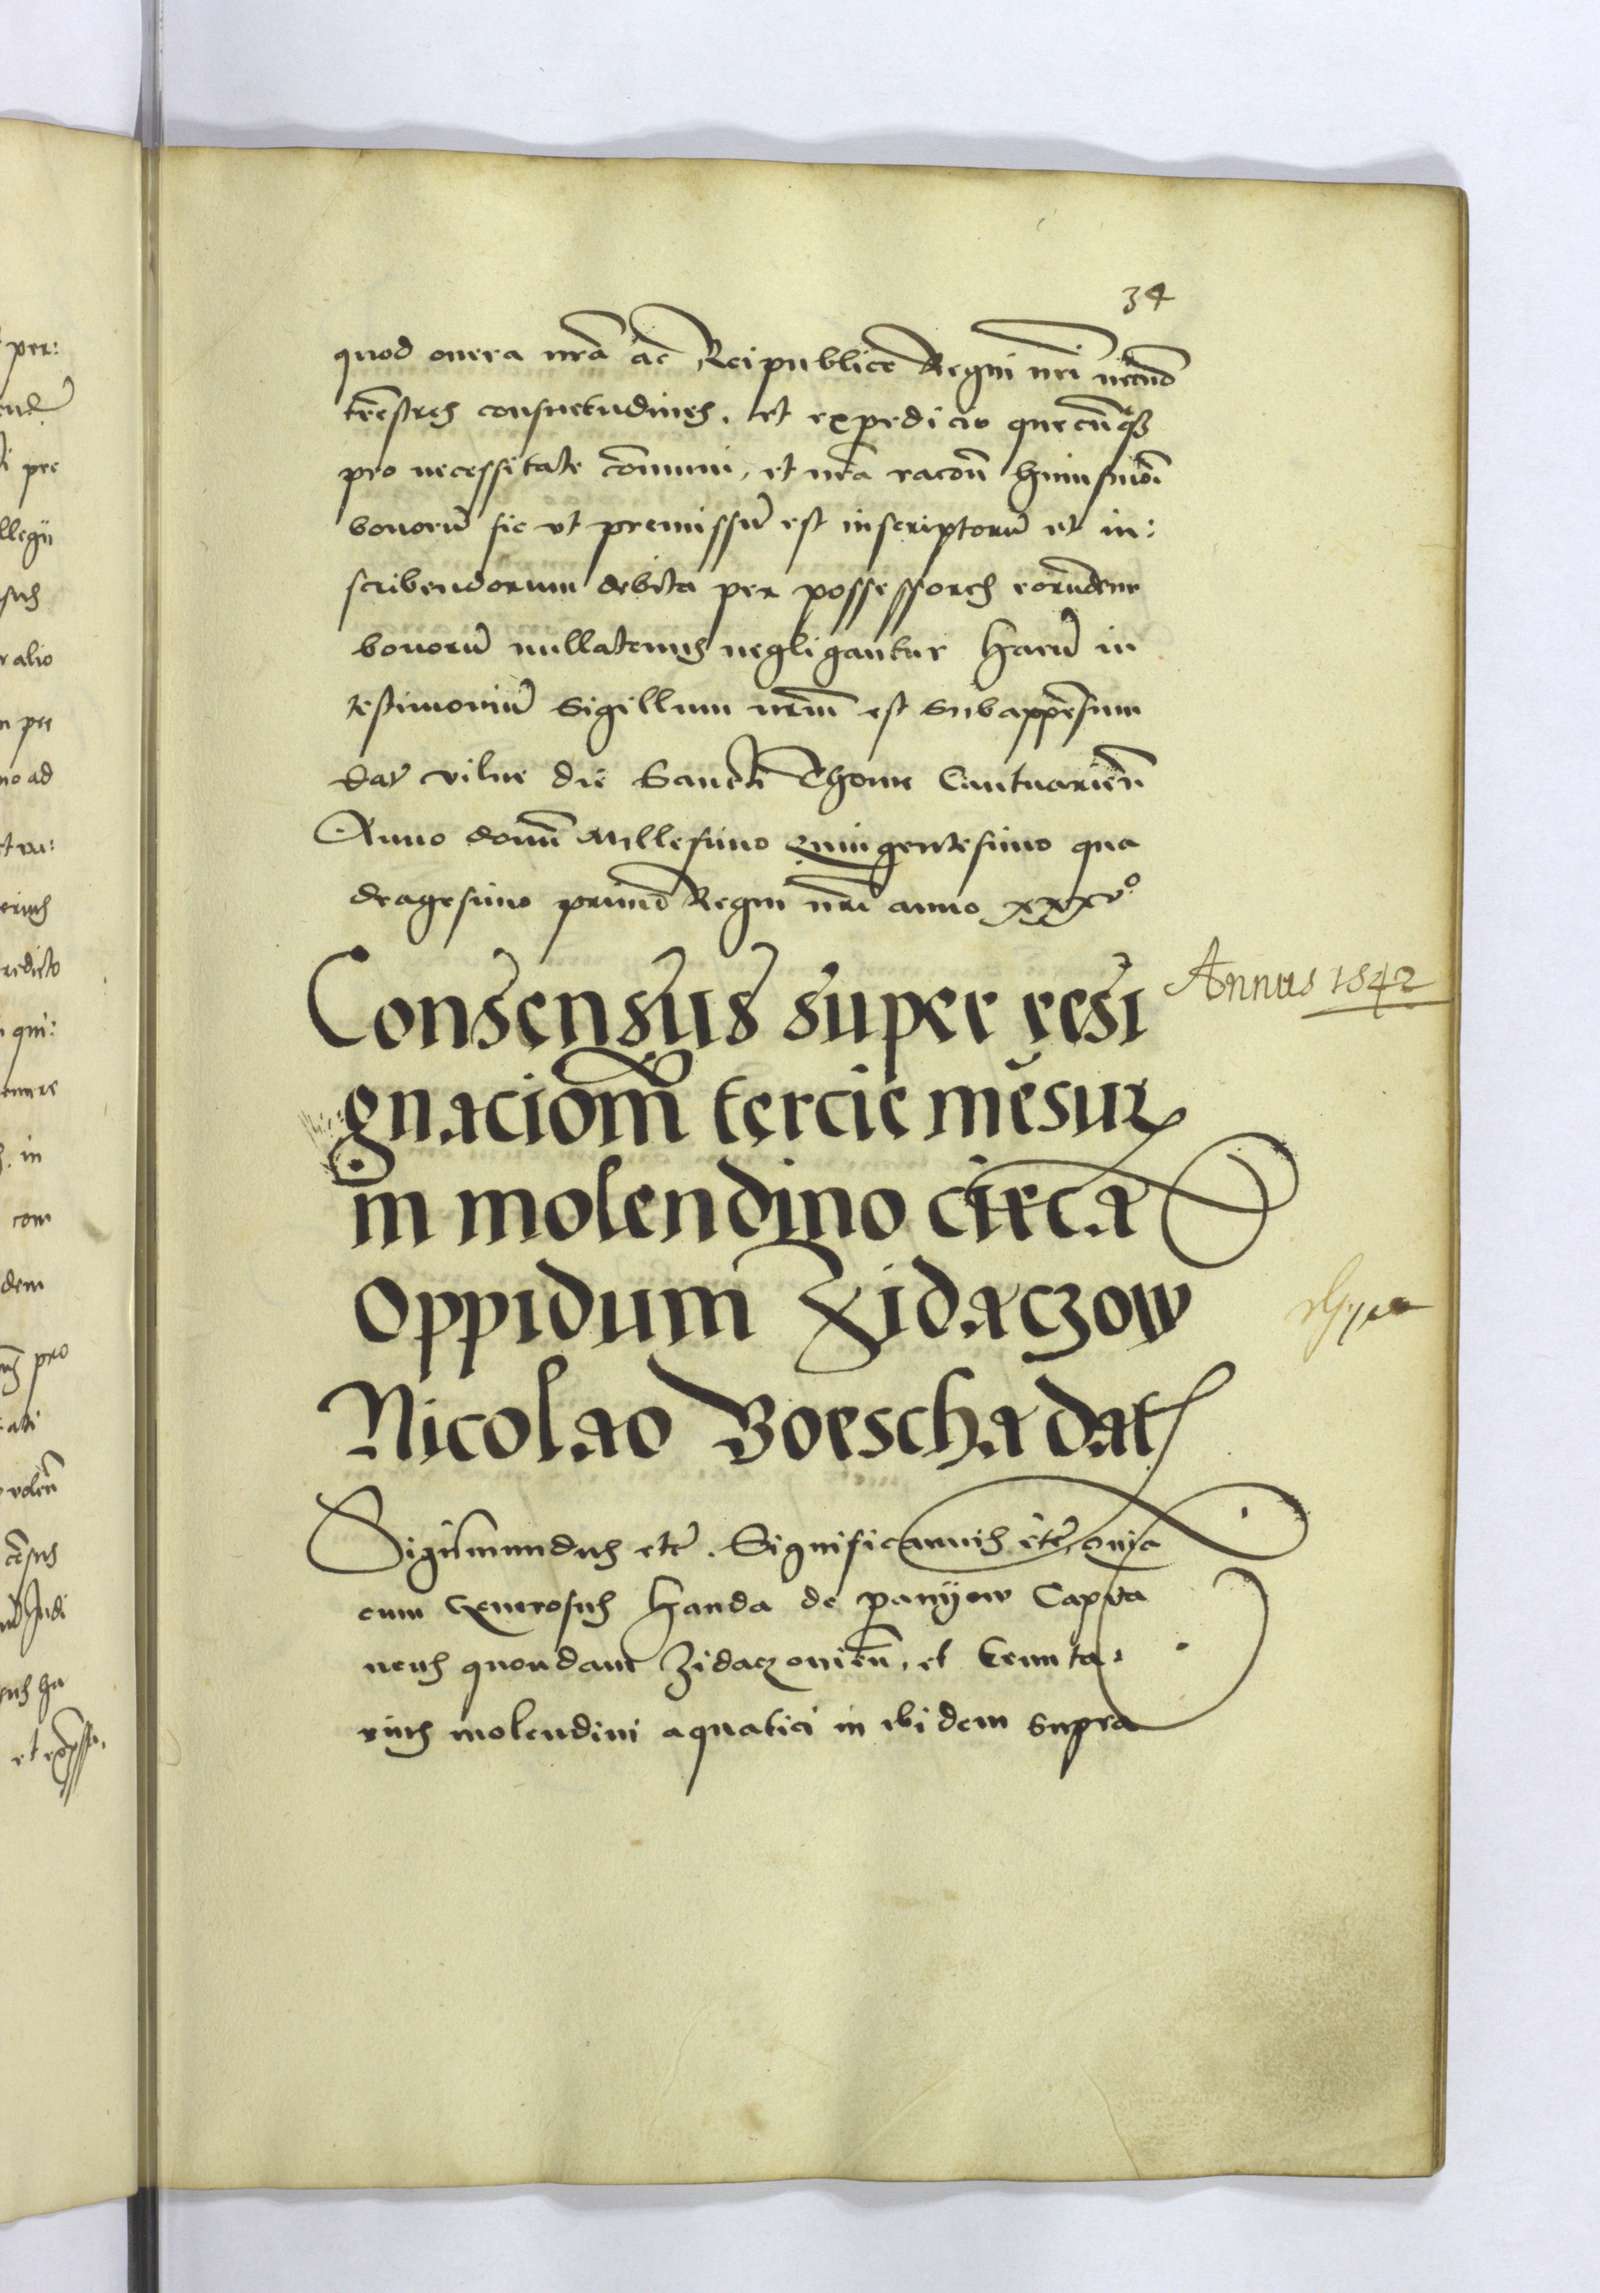 34
quod onera nra ac Reipublice Regni nri necnō
trēstres consuetudines, et expedicio quecūqꝫ
pro necessitate cōmuni, et nra racōn huiusmōi
bonorū sic vt premissū est inscriptorū et in:
scribendorum debita per possessores eorūdem
bonorū nullatenus negligantur Harū in
testimoniū Sigillum nrm est Subappēsum
Dat vilne die Sancti Thome Cantuariēn
Anno domī Millesimo Quingentesimo qua
dragesimo primo Regni nri anno xxxvº
Consensus super resi
gnaciom tercie mēsurꝫ
in molendino circa
Oppidum Zidaczow
Nicolao Borscha dat
Annus 1542
Sigismundus etc. Significamus etc, quia
cum Generosus Handa de panyow Capita
neus quondam Zidaczouieñ, et tenuta:
rius molendini aquatici in ibidem Supra
per:
pre
llegii
alio
no ad
redicto
qui:
in
com
dem
pro
et